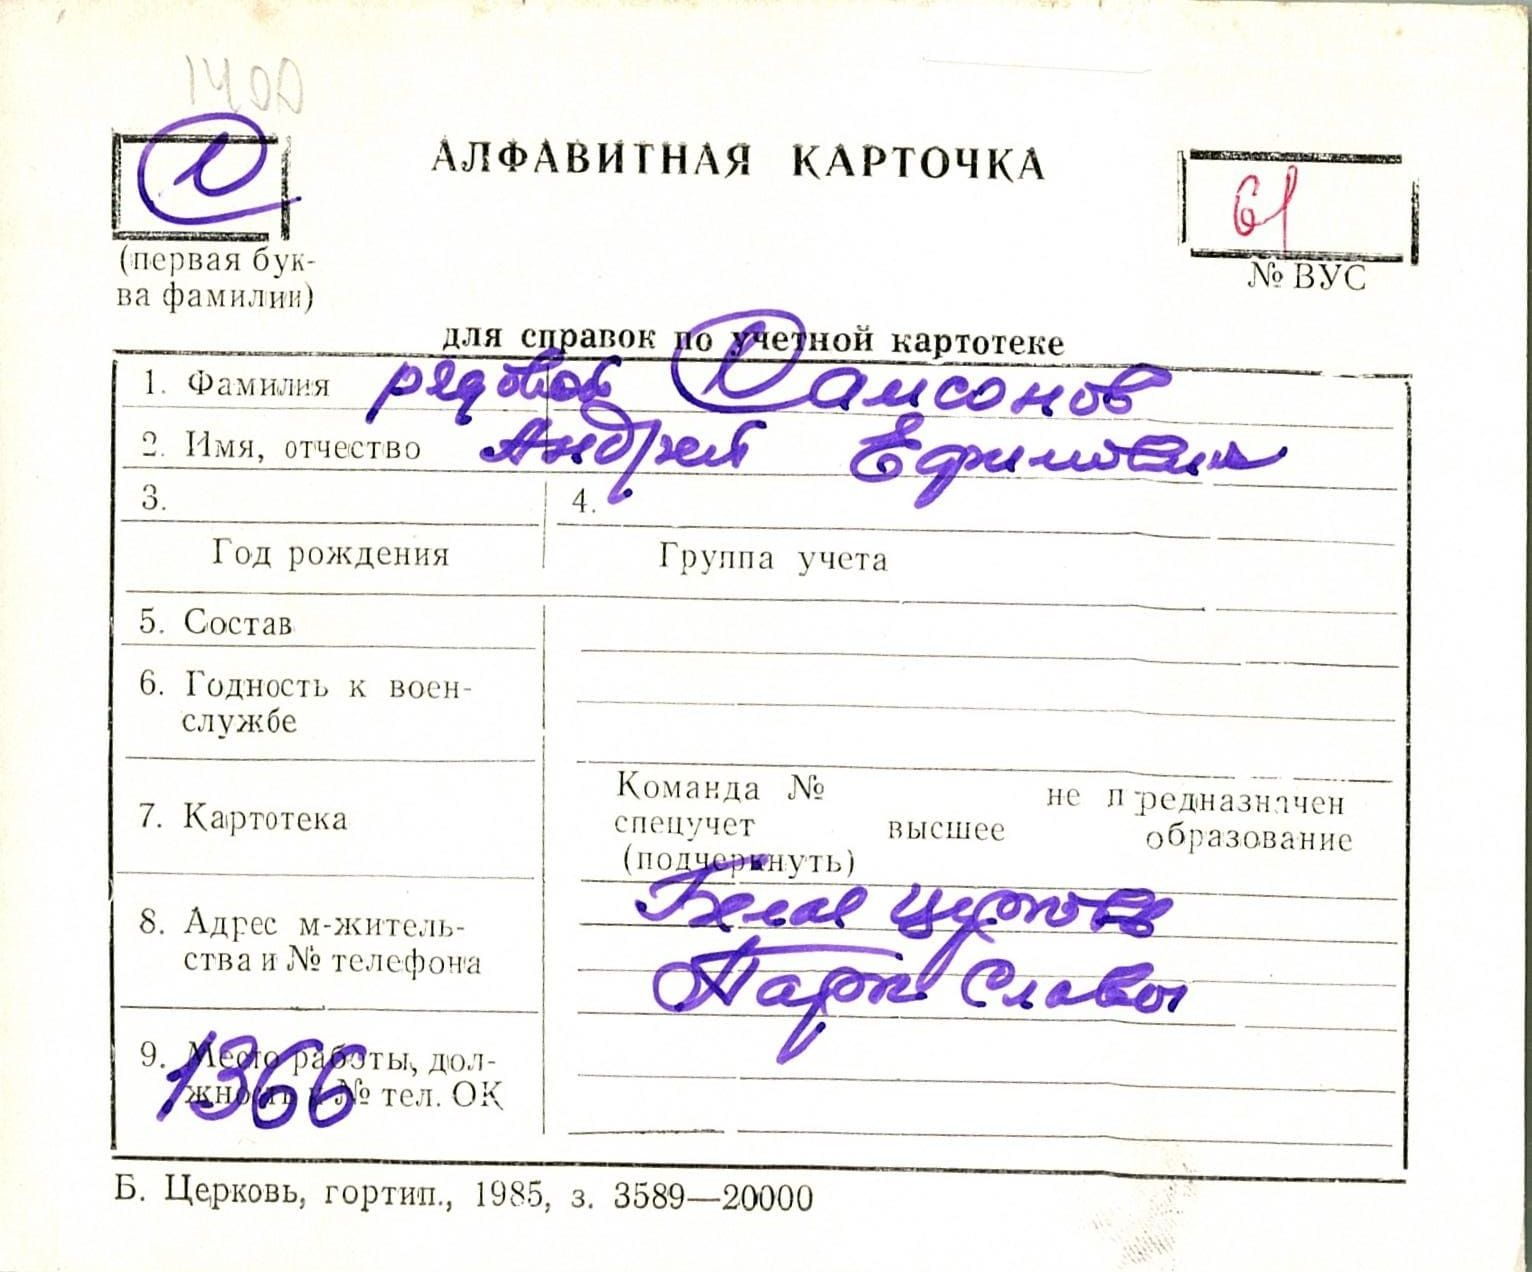 1400
С
АЛФАВИТНАЯ КАРТОЧКА
61
(первая бук-
ва фамилии)
№ ВУС
для справок по учетной картотеке
1. Фамилия рядовой Самсонов
2. Имя, отчество Андрей Ефимович
3. 4.
Год рождения Группа учета
5. Состав
6. Годность к воен-
службе
7. Картотека
Команда № не предназначен
спецучет высшее образование
(подчеркнуть)
8. Адрес м-житель-
ства и № телефона
Белая Церковь
Парк Славы
9. Место работы, дол-
жность и № тел. ОК
1366
Б. Церковь, гортип., 1985, з. 3589—20000